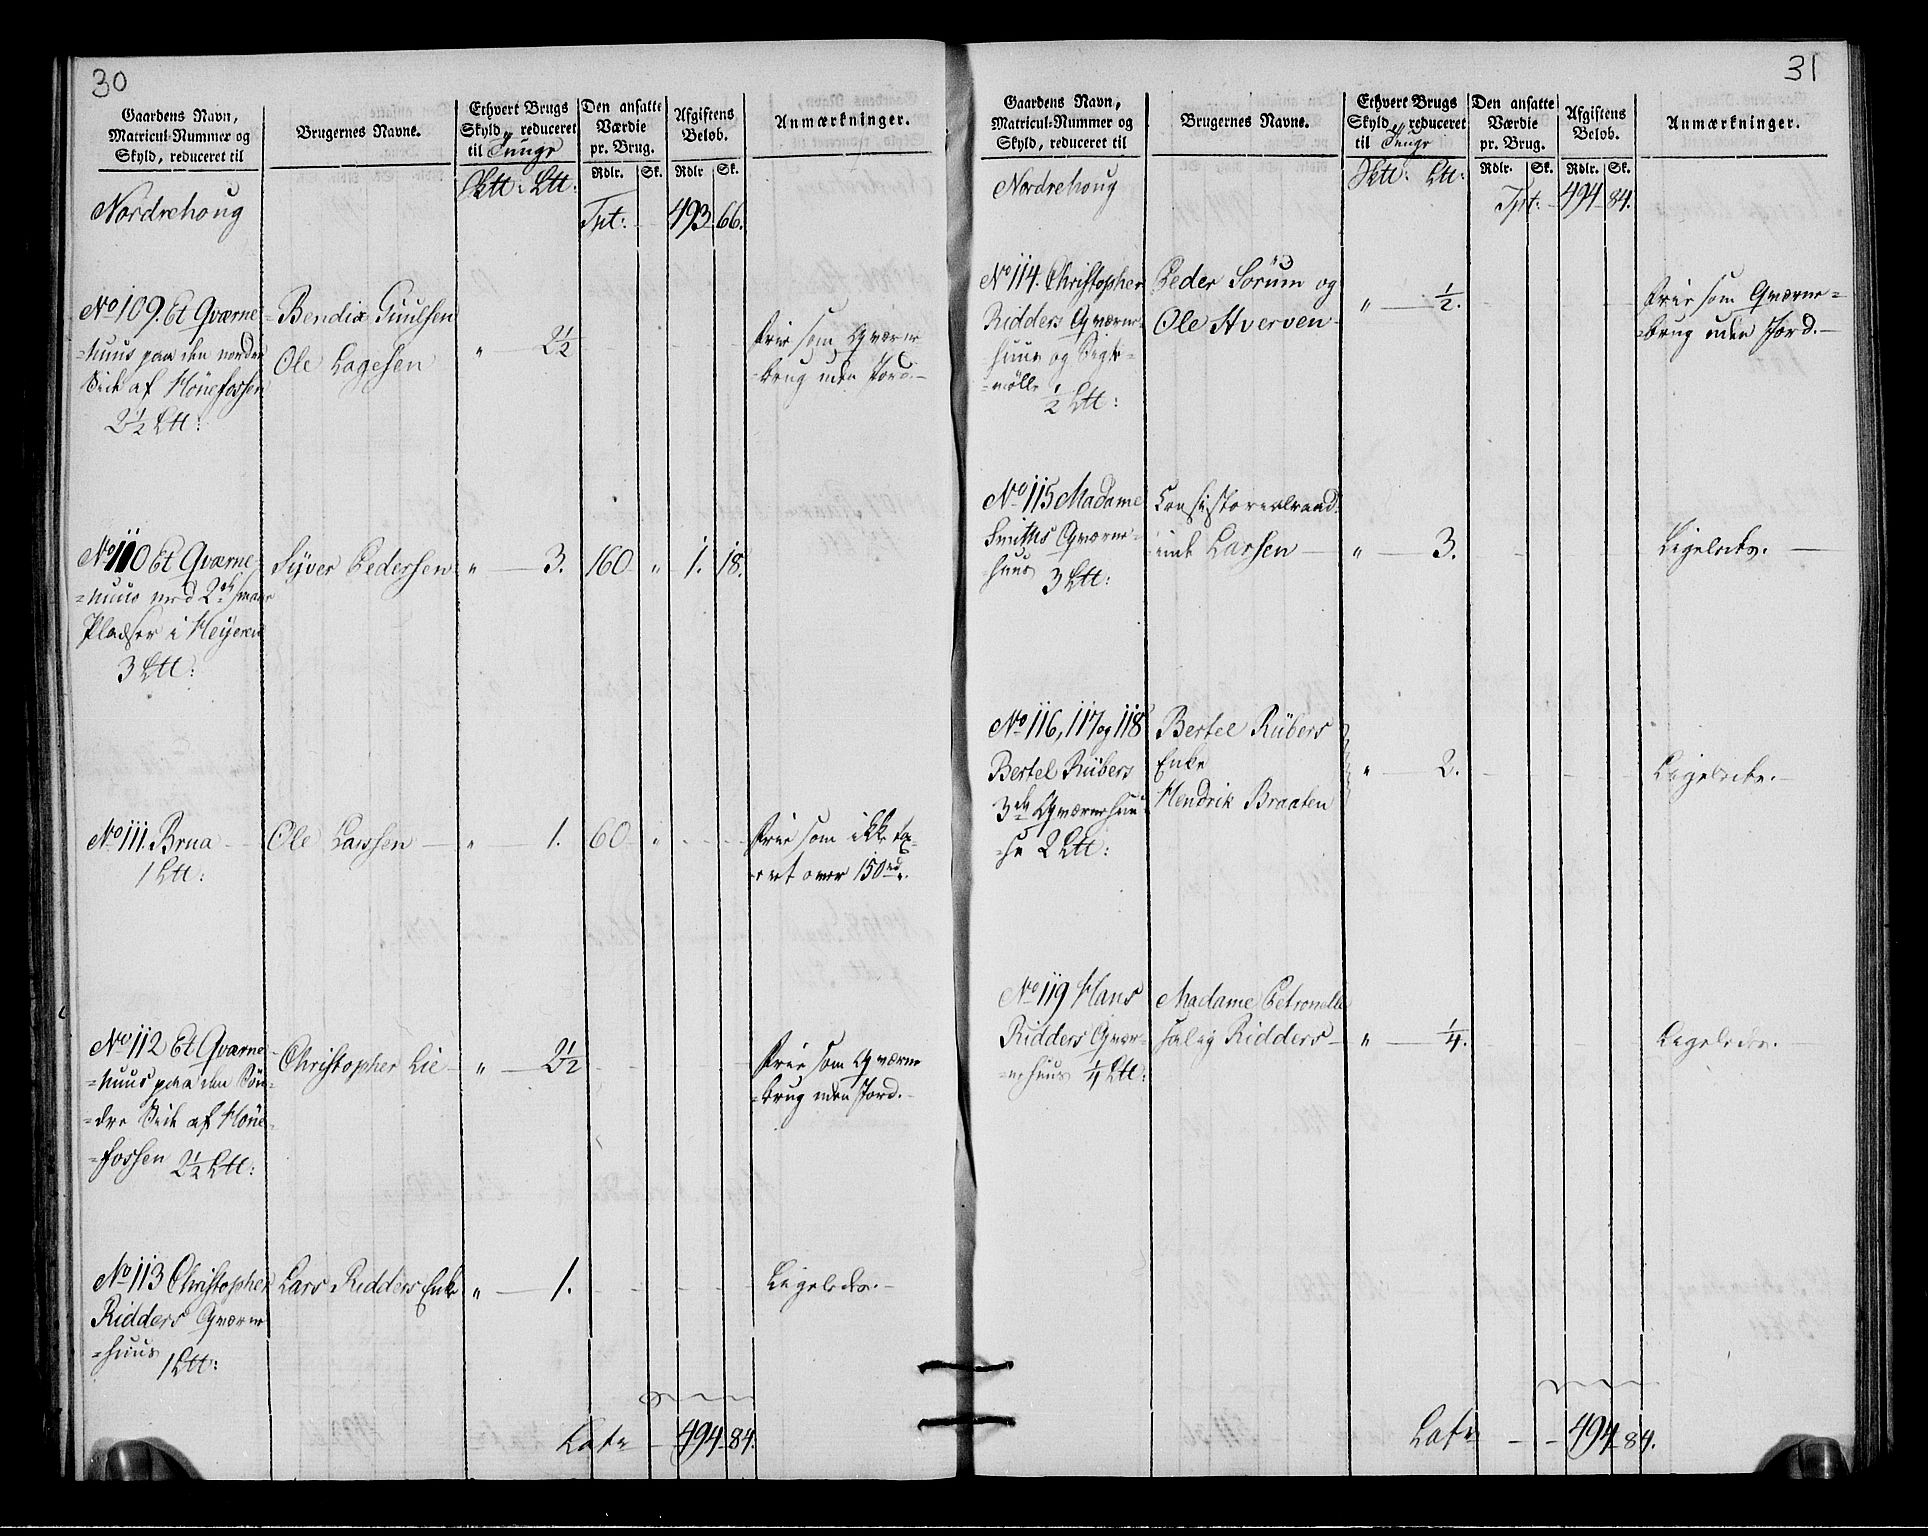 30
Gaardens Navn,
Matricul-Nummer og
Skyld, reduceret til
Brugernes Navne.
Ethvert Brugs
Skyld, reduceret
til Tunge
Den ansatte
Værdie
pr. Brug.
Afgiftens
Beløb.
Anmærkninger.
Rdlr. Sk. Rdlr Sk.
Nordrehoug
Sktt: Ltt:
Tpt: 493. 66.
No 109. Et Qværne-
-huus paa den nordre
Side af Hönefossen
2½ Ltt:
Bendix Guulsen
Ole Lagesen
" 2½
Frie som Qværne
-brug uden Jord.-
No 110 Et Qværne
-huus med 2de smaae
Pladser i Heyeren
3 Ltt:
Syver Pedersen " 3. 160 " 1. 18.
No 111. Brua
1 Ltt:
Ole Larssen " 1. 60 "
Frie som ikke tax-
-eret over 150 rd.
No 112 Et Qværne-
-huus paa den Sön-
-dre Side af Höne-
-fossen 2½ Ltt:
Christopher Lie " 2½
Frie som Qværne
-brug uden Jord.-
No 113 Christopher
Ridders Qværne
-huus 1 Ltt:
Lars Ridders Enke " 1.
Ligeledes.-
Latr 494. 84.
31
Gaardens Navn,
Matricul-Nummer og
Skyld, reduceret til
Brugernes Navne.
Ethvert Brugs
Skyld, reduceret
til Tunge
Den ansatte
Værdie
pr. Brug.
Afgiftens
Beløb.
Anmærkninger.
Rdlr. Sk. Rdlr. Sk.
Nordrehoug
Sktt: Ltt:
Tpt: 494. 84.
No 114. Christopher
Ridders Qværne-
-huus og Sigte-
-mölle ½ Ltt:
Peder Sörum og
Ole Hverven
" ½.
Frie som Qværne-
-brug uden Jord.-
No 115 Madame
Smiths Qværne-
huus 3 Ltt:
Consistorialraad-
-inde Larsen " 3.
Ligeledes.
No 116, 117 og 118
Bertel Rübers
3de Qværnehuu-
-se 2 Ltt:
Bertel Rübers
Enke
Hendrik Braaten
" 2.
Ligeledes.-
No 119 Hans
Ridders Qvær-
-nehuus ¼ Ltt:
Madame Petronelle
salig Ridders " ¼.
Ligeledes.
Latr 494. 84.